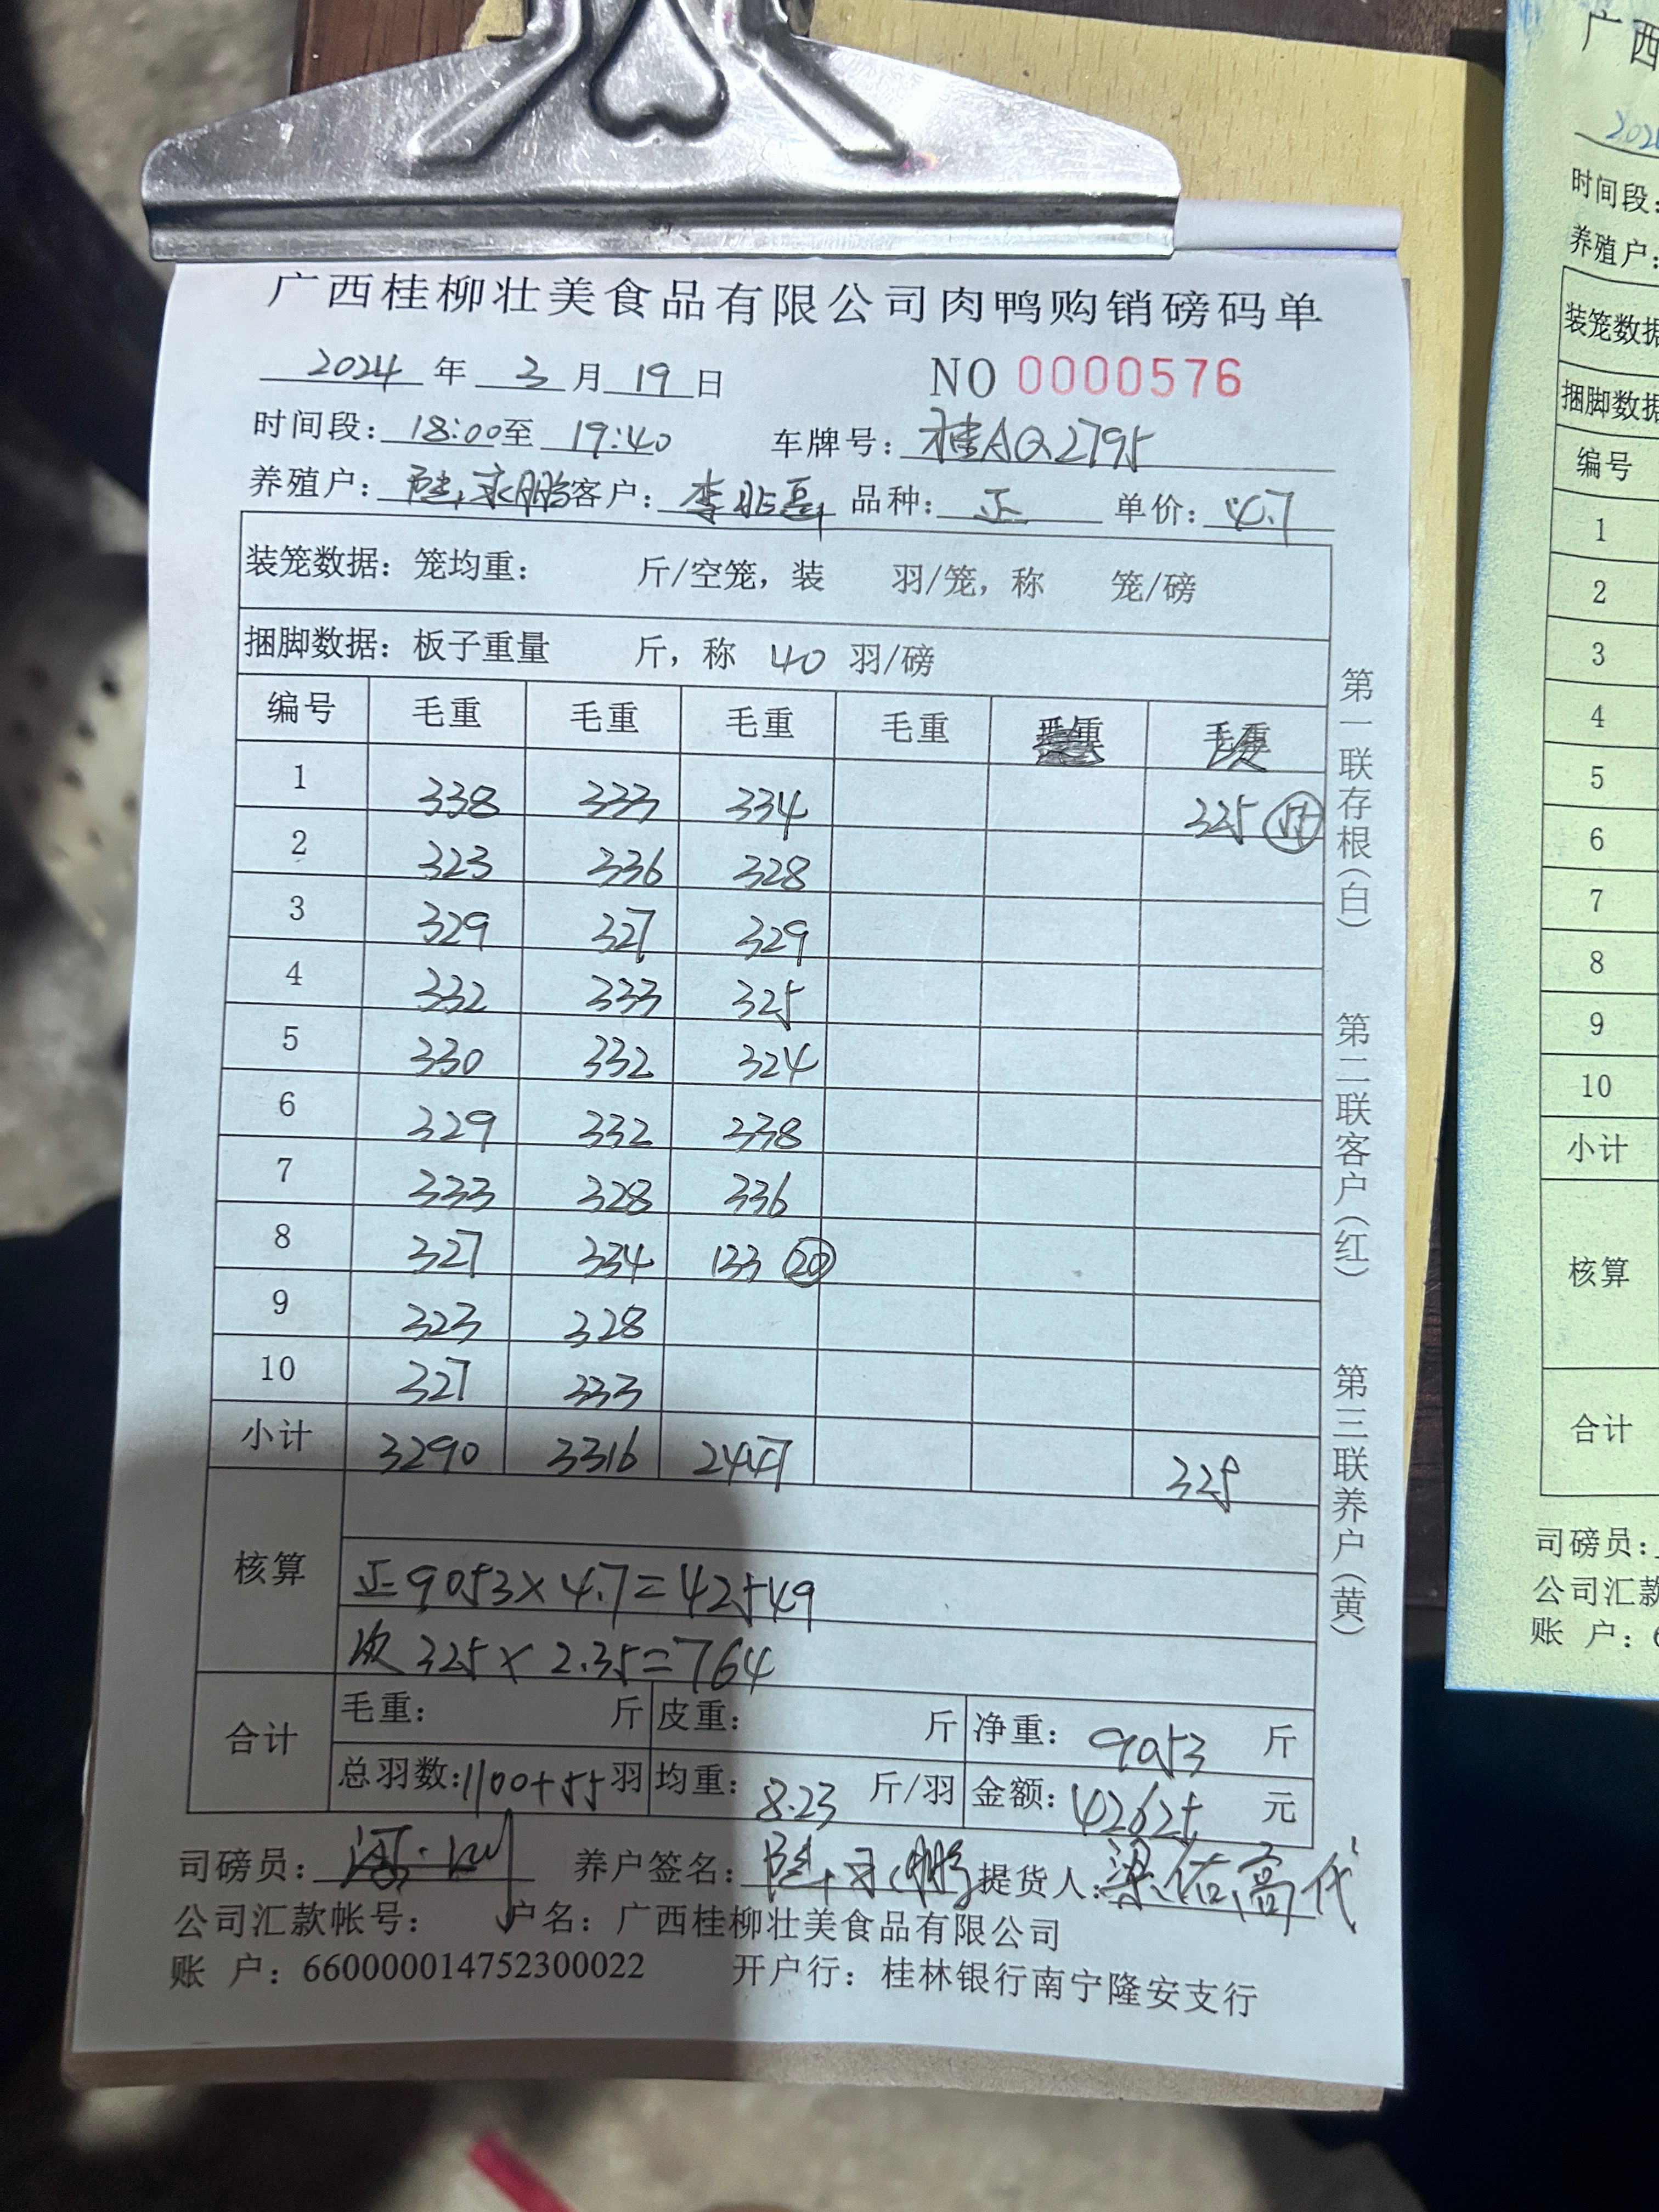 广西桂柳壮美食品有限公司肉鸭购销磅码单
2024 年 3 月 19 日 NO 0000576
时间段: 18:00至 19:40 车牌号: 桂AQ2795
养殖户: 陆永鹏 客户: 李 品种: 正 单价: 4.7
装笼数据: 笼均重: 斤/空笼, 装 羽/笼, 称 笼/磅
捆脚数据: 板子重量 斤, 称 40 羽/磅
编号 毛重 毛重 毛重 毛重 次
1 338 333 334 325 55
2 323 336 328
3 329 327 329
4 332 333 325
5 330 332 324
6 329 332 338
7 333 328 336
8 327 334 133 20
9 323 328
10 327 333
小计 3290 3316 2447 325
核算
正 9053×4.7=42549
次 325×2.35=764
合计 毛重: 斤 皮重: 斤 净重: 9053 斤
总羽数: 1100+55 羽 均重: 8.23 斤/羽 金额: 42625 元
司磅员: 养户签名: 陆永鹏 提货人: 梁佑高代
公司汇款帐号: 户名: 广西桂柳壮美食品有限公司
账 户: 660000014752300022 开户行: 桂林银行南宁隆安支行
第一联存根(白) 第二联客户(红) 第三联养户(黄)
广西
202
时间段:
养殖户:
装笼数据
捆脚数据
编号
1
2
3
4
5
6
7
8
9
10
小计
核算
合计
司磅员:
公司汇款
账 户: 6